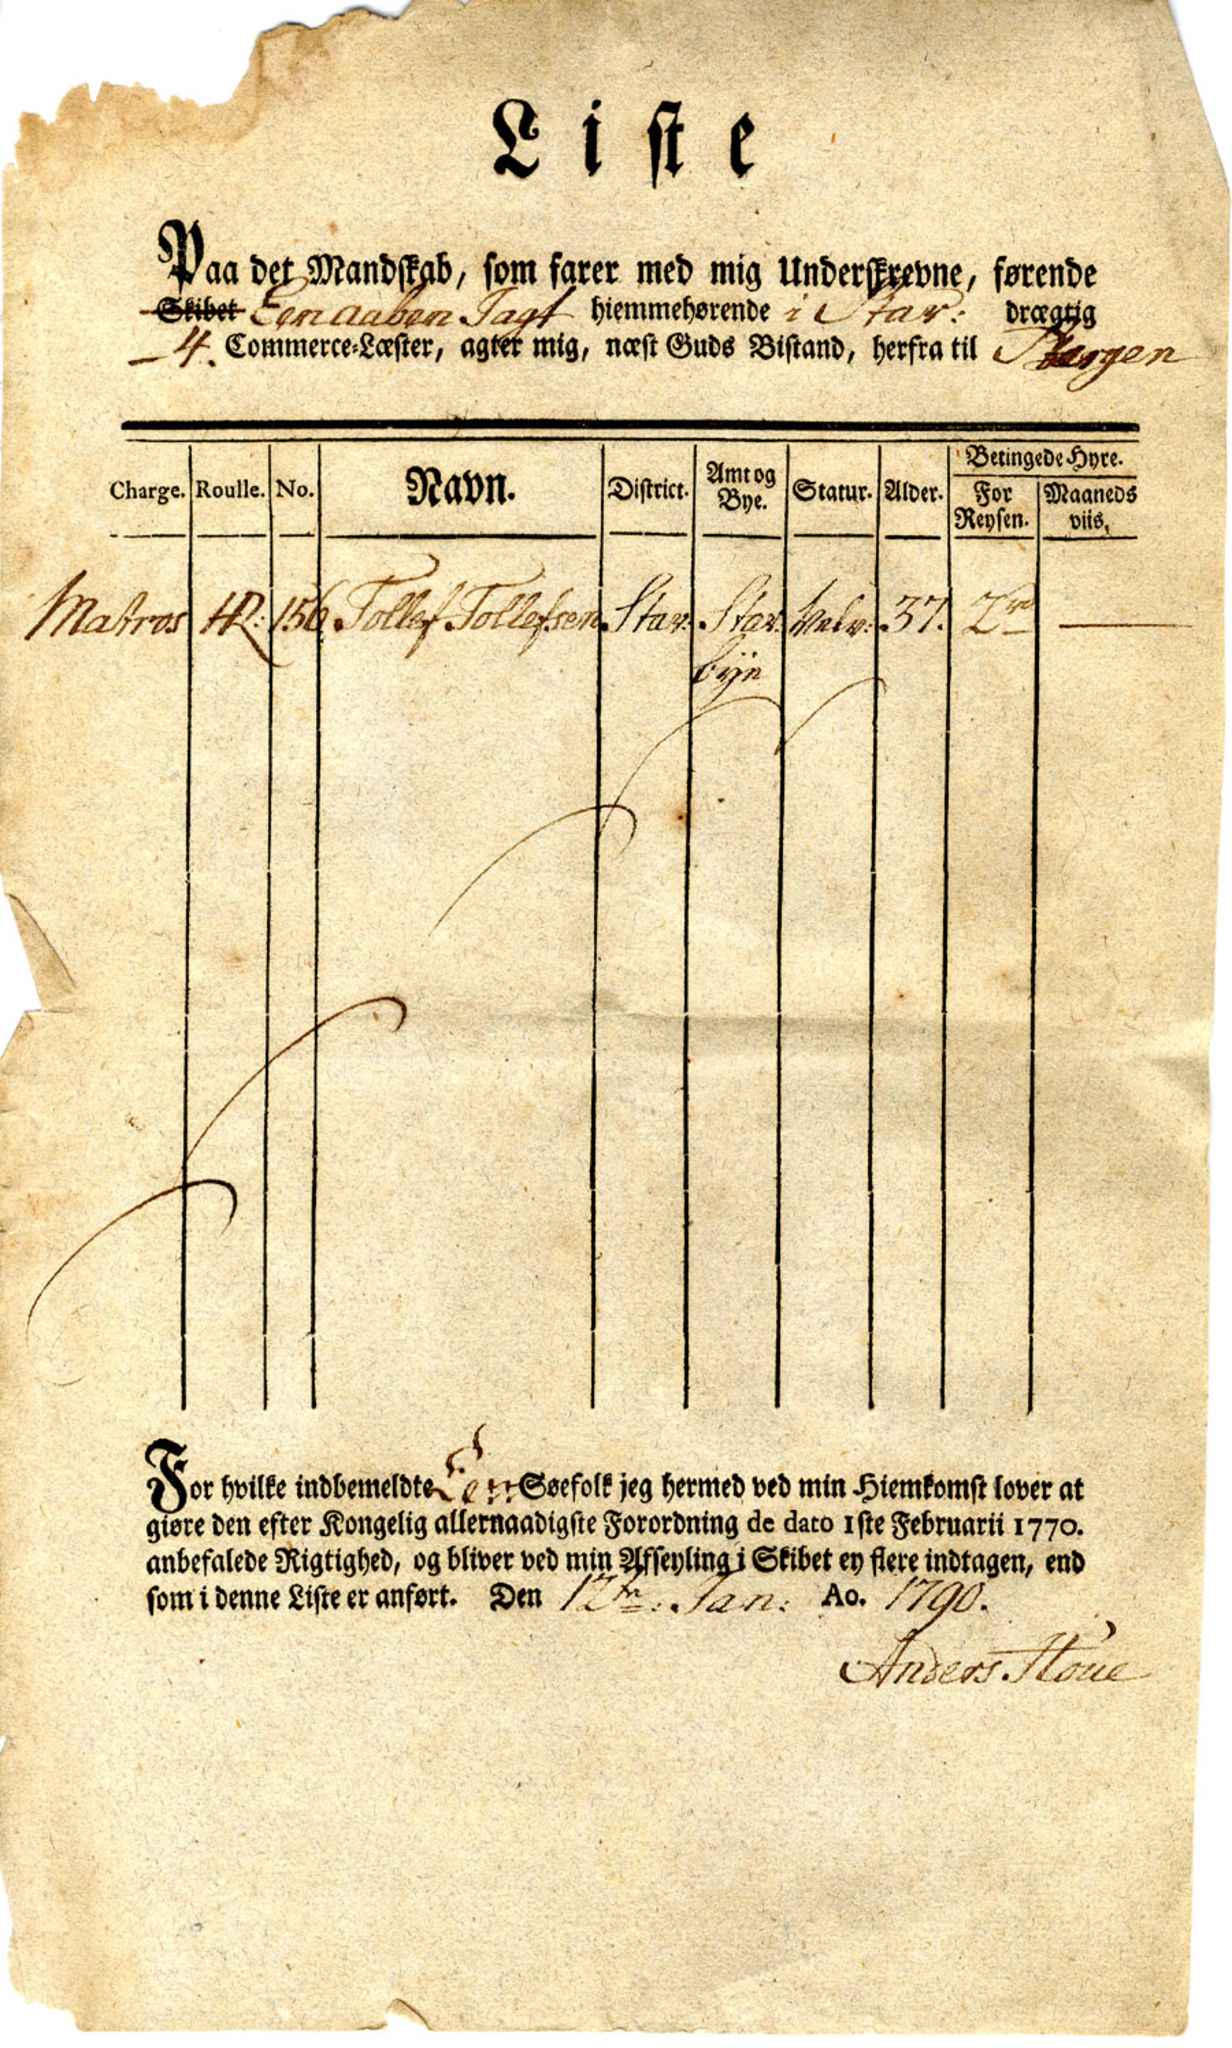 Liste
Paa det Mandskab, som farer med mig Underskrevne, førende
Skibet Een aaben Jagt hiemmehørende i Stav: drægtig
4. Commerce-Læster, agter mig, næst Guds Bistand, herfra til Bergen
Betingede Hyre.
Charge. Roulle. No. Navn. District. Amt og Bye. Statur. Alder. For Reysen. Maaneds viis.
Matros HR: 156 Tollef Tollefsen Stav: Stav: 37. 2rd
bÿe
For hvilke indbemeldte Een Søefolk jeg hermed ved min Hiemkomst lover at
giøre den efter Kongelig allernaadigste Forordning de dato 1ste Februarii 1770.
anbefalede Rigtighed, og bliver ved min Afseyling i Skibet ey flere indtagen, end
som i denne Liste er anført. Den 12te: Jan: Ao. 1790.
Anders